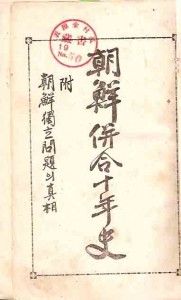 朝鮮併合十年史
附
朝鮮獨立問題의眞相
藏書
19